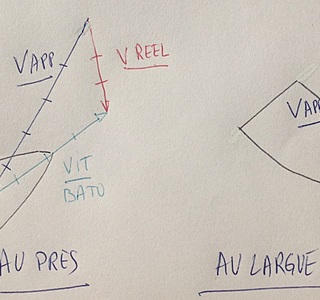 VAPP
V REEL
VIT
BATO
VAPP
AU PRES
AU LARGUE